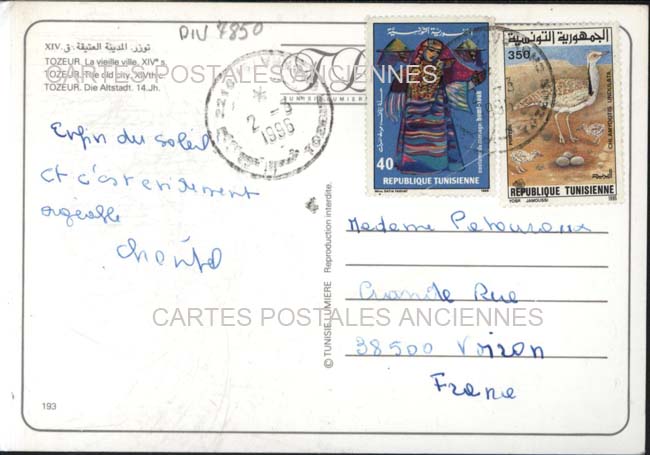 DIV 7850
توزر. المدينة العتيقة. ق. XIV
TOZEUR. La vieille ville. XIVᵉ s.
TOZEUR. The old city. XIVth c.
TOZEUR. Die Altstadt. 14.Jh.
CARTES POSTALES ANCIENNES
2210
2 -3
1996
40
REPUBLIQUE TUNISIENNE
الجمهورية التونسية
350
CHLAMYDOTIS UNDULATA
REPUBLIQUE TUNISIENNE
YOSR JAMOUSSI 1995
Enfin du soleil
et c'est
agréable
Chantal
Madame
Grande Rue
38500 Voiron
France
© TUNISIE LUMIERE Reproduction interdite.
CARTES POSTALES ANCIENNES
193